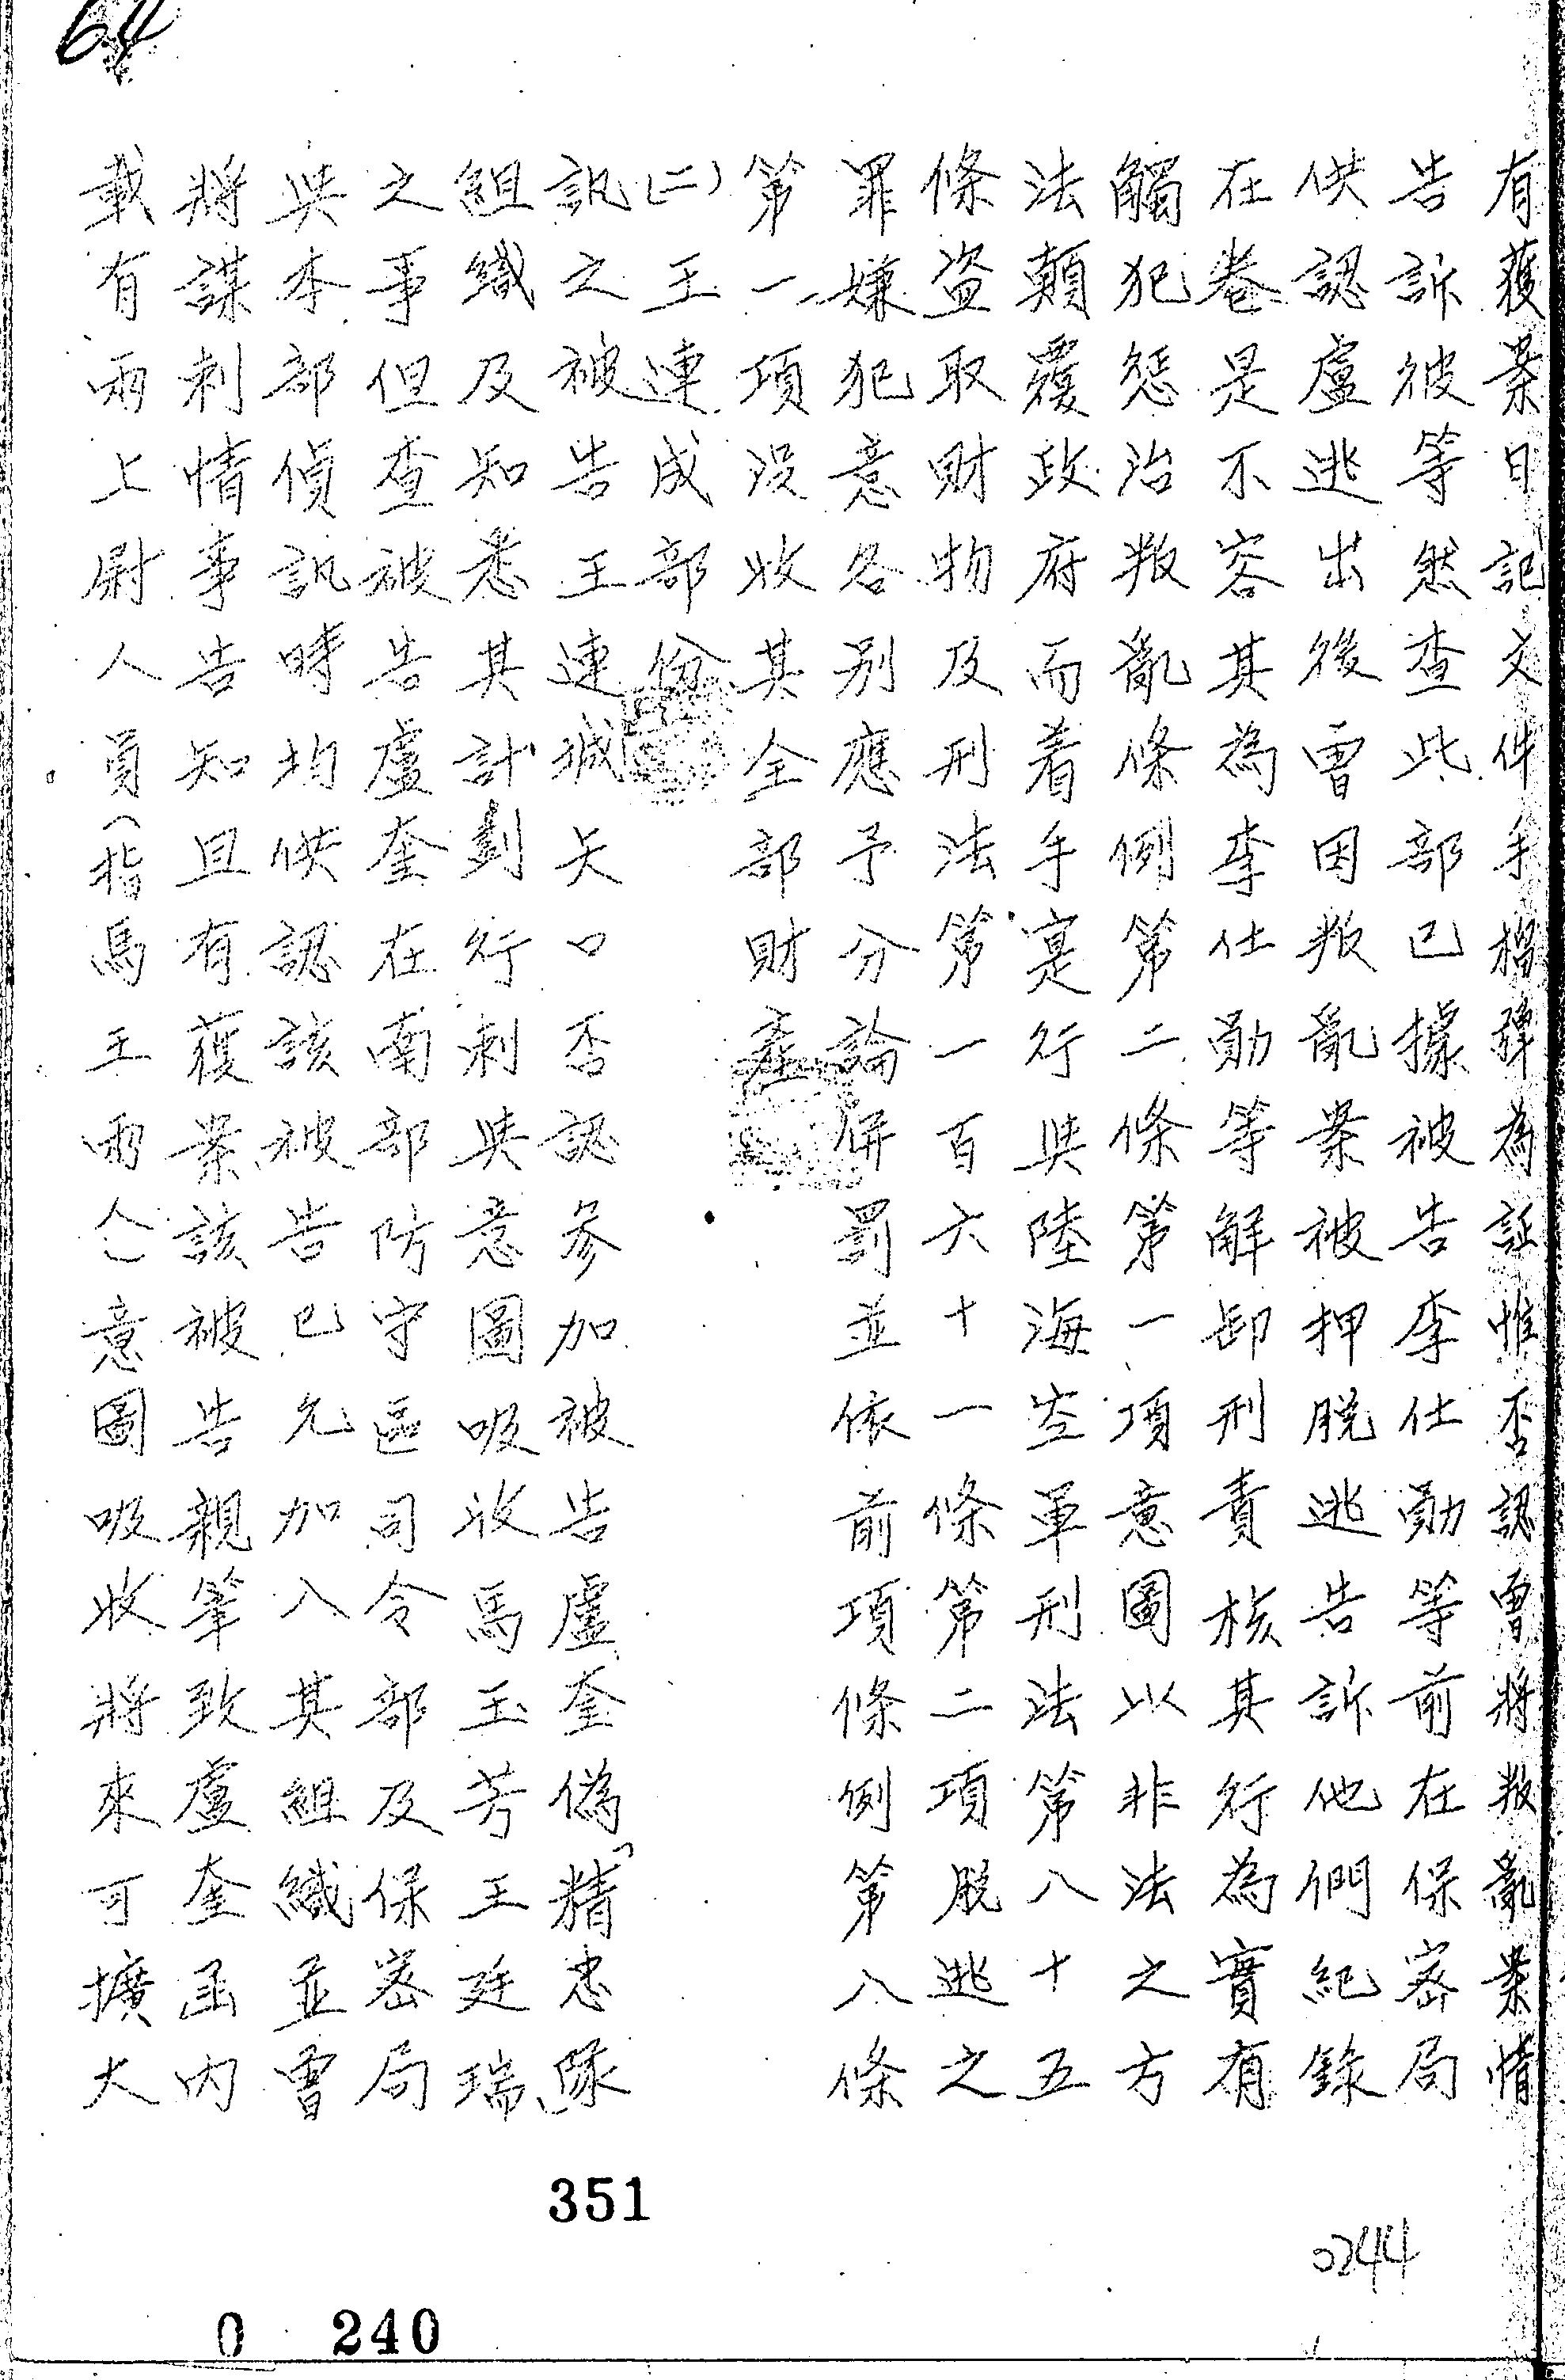 64
有獲案日記文件手榴彈為証惟否認曾將叛亂案情
告訴彼等然查此部已據被告李仕勛等前在保密局
供認盧逃出後曾因叛亂案被押脫逃告訴他們紀錄
在卷是不容其為李仕勛等解卸刑責核其行為實有
觸犯懲治叛亂條例第二條第一項意圖以非法之方
法顛覆政府而着手寔行與陸海空軍刑法第八十五
條盜取財物及刑法第一百六十一條第二項脫逃之
罪嫌犯意各別應予分論併罰並依前項條例第八條
第一項沒收其全部財產
(二)王連成部份
訊之被告王連城矢口否認參加被告盧奎偽「精忠隊」
組織及知悉其計劃行刺與意圖吸收馬玉芳王廷瑞
之事但查被告盧奎在南部防守區司令部及保密局
與本部偵訊時均供認該被告已允加入其組織並曾
將謀刺情事告知且有獲案該被告親筆致盧奎函內
載有兩上尉人員(指馬王兩仝意圖吸收將來可擴大
351
0244
0 240